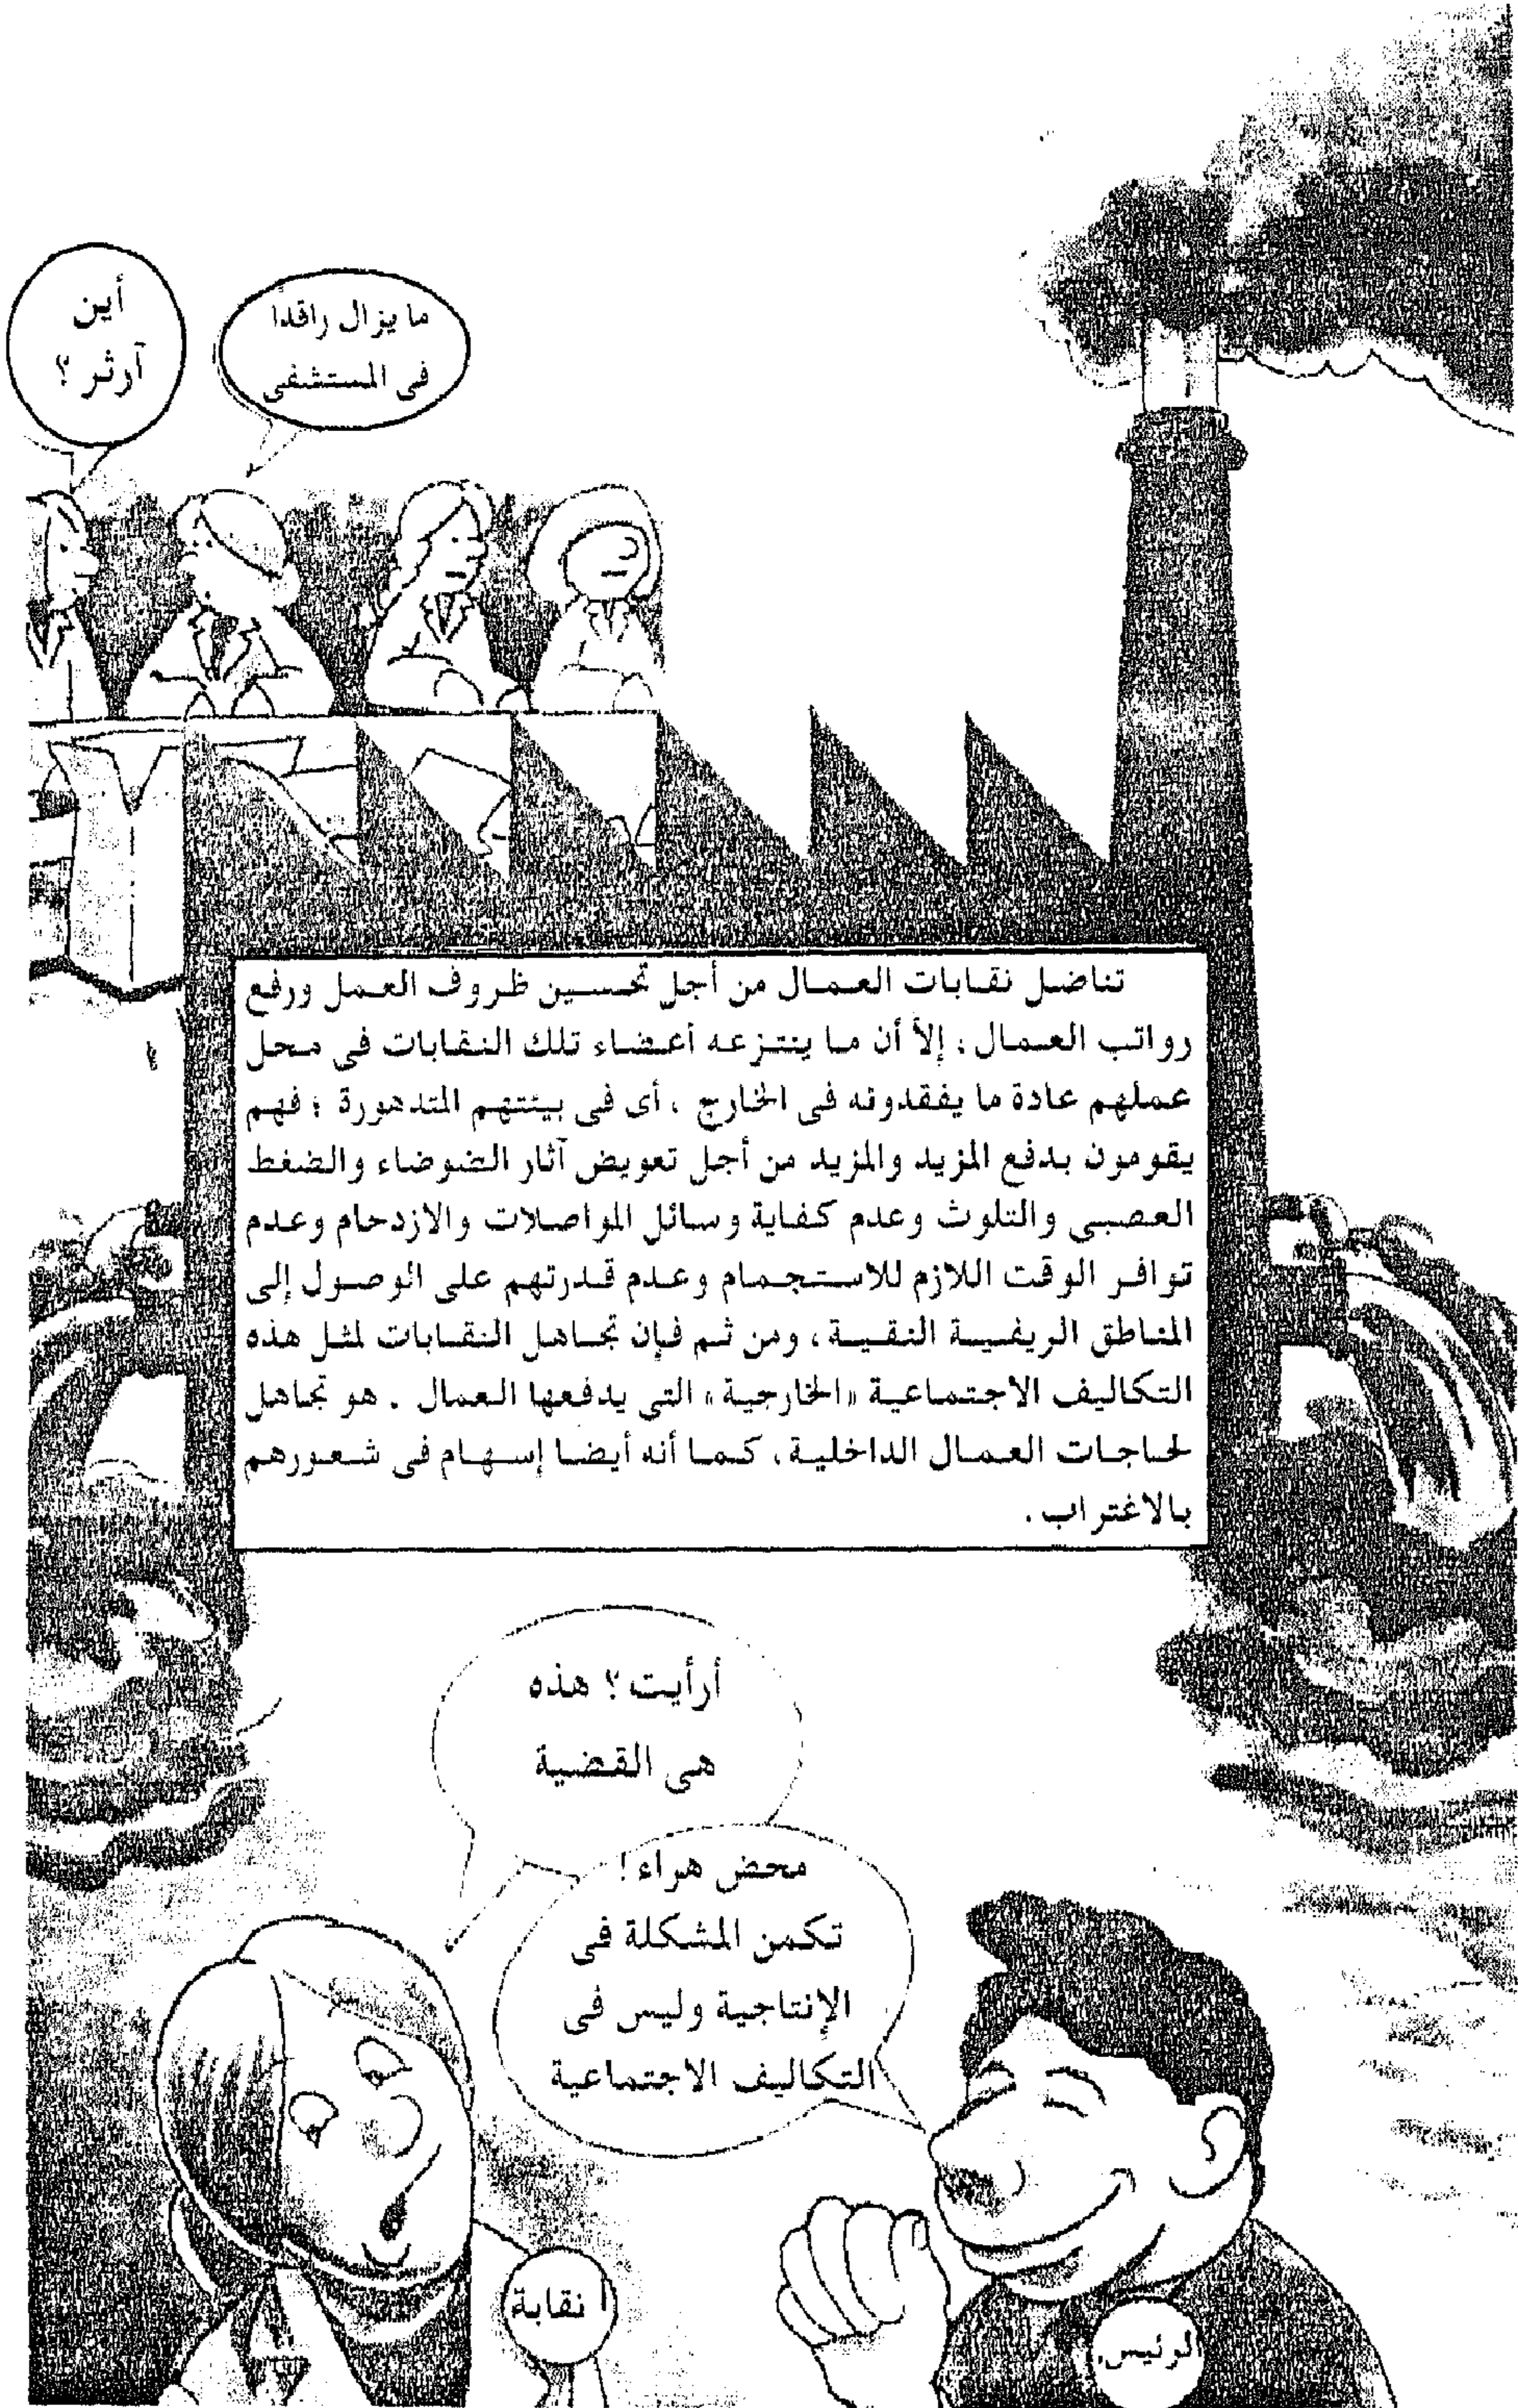 أين
آرثر ؟
ما يزال راقدا
فى المستشفى
تناضل نقابات العمال من أجل تحسين ظروف العمل ورفع
رواتب العمال ، إلاَّ أن ما ينتزعه أعضاء تلك النقابات فى محل
عملهم عادة ما يفقدونه فى الخارج ، أى فى بيئتهم المتدهورة ؛ فهم
يقومون بدفع المزيد والمزيد من أجل تعويض آثار الضوضاء والضغط
العصبى والتلوث وعدم كفاية وسائل المواصلات والازدحام وعدم
توافر الوقت اللازم للاستجمام وعدم قدرتهم على الوصول إلى
المناطق الريفية النقية ، ومن ثم فإن تجاهل النقابات لمثل هذه
التكاليف الاجتماعية «الخارجية» التى يدفعها العمال . هو تجاهل
لحاجات العمال الداخلية ، كما أنه أيضا إسهام فى شعورهم
بالاغتراب .
أرأيت ؟ هذه
هى القضية
محض هراء !
تكمن المشكلة فى
الإنتاجية وليس فى
التكاليف الاجتماعية
نقابة
لرئيس